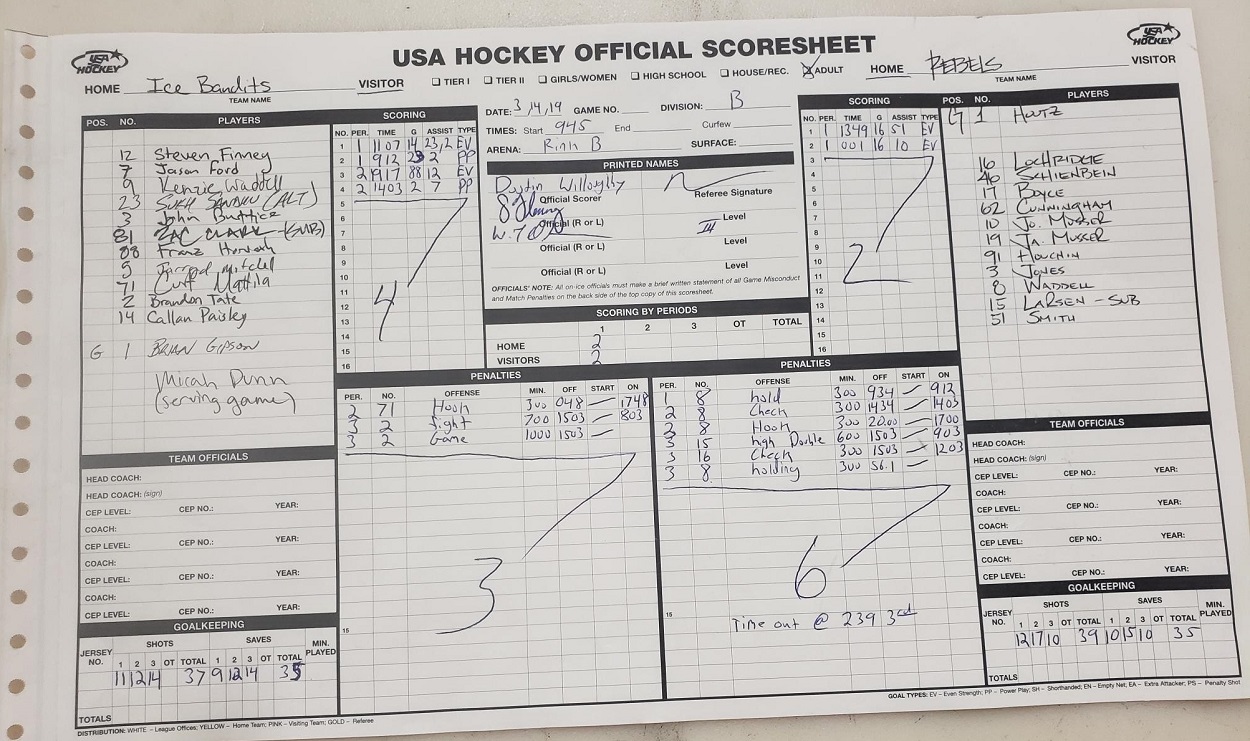 USA HOCKEY
USA HOCKEY OFFICIAL SCORESHEET
USA HOCKEY
HOME Ice Bandits VISITOR
TEAM NAME
TIER I TIER II GIRLS/WOMEN HIGH SCHOOL HOUSE/REC. ADULT
HOME REBELS VISITOR
TEAM NAME
POS. NO. PLAYERS
12 Steven Finney
7 Jason Ford
9 Kenzie Waddell
23 SUKH SANDHU (ALT)
3 John
81 ZAC CLARK (SUB)
88 Franz
5 Jarrod Mitchell
71 Curt Mattila
2 Brandon Tate
14 Callan Paisley
G 1 BRIAN GIPSON
Micah Dunn
(serving game)
SCORING
NO. PER. TIME G ASSIST TYPE
1 1 1107 14 23,2 EV
2 1 912 23 2 PP
3 2 917 88 12 EV
4 2 1403 2 7 PP
5
6
7
8
9
10
11
12
13
14
15
16
4
DATE: 3,14,19 GAME NO. DIVISION: B
TIMES: Start 945 End Curfew
ARENA: Rink B SURFACE:
PRINTED NAMES
Dustin Willoughby
Official Scorer Referee Signature
Official (R or L) Level III
Official (R or L) Level
Official (R or L) Level
OFFICIALS' NOTE: All on-ice officials must make a brief written statement of all Game Misconduct
and Match Penalties on the back side of the top copy of this scoresheet.
SCORING BY PERIODS
1 2 3 OT TOTAL
HOME 2
VISITORS 2
SCORING
NO. PER. TIME G ASSIST TYPE
1 1 1349 16 51 EV
2 1 001 16 10 EV
3
4
5
6
7
8
9
10
11
12
13
14
15
16
2
POS. NO. PLAYERS
G 1 HOUTZ
16 LOCHRIDGE
46 SCHIENBEIN
17 BOYCE
62 CUNNINGHAM
10 JO. MUSSER
19 JA. MUSSER
91 HOUCHIN
3 JONES
8 WADDELL
15 LARSEN - SUB
51 SMITH
PENALTIES
PER. NO. OFFENSE MIN. OFF START ON
2 71 Hook 300 048 1748
3 2 fight 700 1503 803
3 2 Game 1000 1503
3
15
PENALTIES
PER. NO. OFFENSE MIN. OFF START ON
1 8 hold 300 934 912
2 8 Check 300 1434 1403
2 8 Hook 300 20.00 1700
3 15 high Double 600 1503 903
3 16 Check 300 1503 1203
3 8 holding 300 56.1
6
15
Time out @ 239 3rd
TEAM OFFICIALS
HEAD COACH:
HEAD COACH: (sign)
CEP LEVEL: CEP NO.: YEAR:
COACH:
CEP LEVEL: CEP NO.: YEAR:
COACH:
CEP LEVEL: CEP NO.: YEAR:
COACH:
CEP LEVEL: CEP NO.: YEAR:
GOALKEEPING
JERSEY NO. SHOTS SAVES MIN. PLAYED
1 2 3 OT TOTAL 1 2 3 OT TOTAL
11 12 14 37 9 12 14 35
TOTALS
TEAM OFFICIALS
HEAD COACH:
HEAD COACH: (sign)
CEP LEVEL: CEP NO.: YEAR:
COACH:
CEP LEVEL: CEP NO.: YEAR:
COACH:
CEP LEVEL: CEP NO.: YEAR:
COACH:
CEP LEVEL: CEP NO.: YEAR:
GOALKEEPING
JERSEY NO. SHOTS SAVES MIN. PLAYED
1 2 3 OT TOTAL 1 2 3 OT TOTAL
12 17 10 39 10 15 10 35
TOTALS
DISTRIBUTION: WHITE – League Offices; YELLOW – Home Team; PINK – Visiting Team; GOLD – Referee
GOAL TYPES: EV – Even Strength; PP – Power Play; SH – Shorthanded; EN – Empty Net; EA – Extra Attacker; PS – Penalty Shot